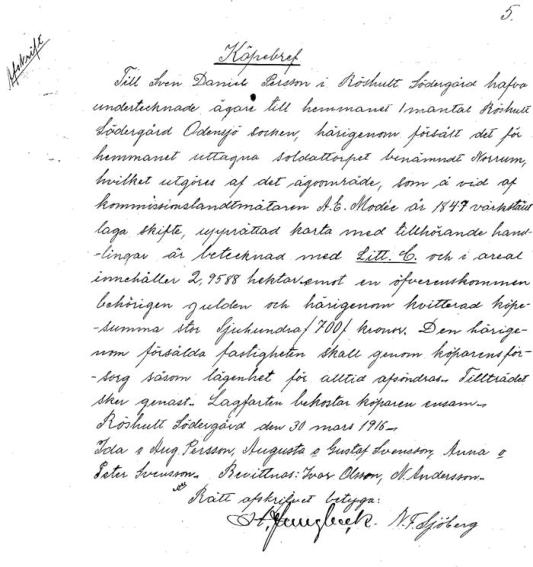 5.
Afskrift
Köpebref
Till Sven Daniel Persson i Röshult Södergård hafva
undertecknade ägare till hemmanet 1 mantal Röshult
Södergård Odensjö socken, härigenom försålt det för
hemmanet uttagna soldattorpet benämndt Norrum,
hvilket utgöres af det ägoområde, som å vid af
kommissionslandtmätaren A.E. Modée år 1847 värkstäld
laga skifte, upprättad karta med tillhörande hand-
-lingar är betecknad med Litt. C. och i areal
innehåller 2,9588 hektar, emot en öfverenskommen
behörigen gulden och härigenom kvitterad köpe-
-summa stor Sjuhundra /700/ kronor. Den härige-
nom försålda fastigheten skall genom köparens för-
-sorg såsom lägenhet för alltid afsöndras. Tillträdet
sker genast. Lagfarten bekostar köparen ensam.
Röshult Södergård den 30 mars 1916.
Ida o Aug. Persson, Augusta o Gustaf Svensson, Anna o
Peter Svensson. Bevittnas: Ivar Olsson, N. Andersson.
Rätt afskrifvet betyga:
Ljungbeck. N.F. Sjöberg